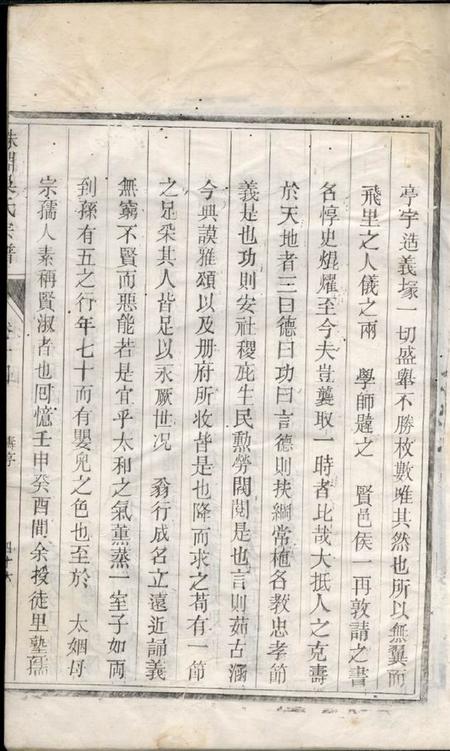 亭宇造義塚一切盛舉不勝枚數唯其然也所以無翼而
飛里之人儀之兩　學師韙之　賢邑侯一再敦請之書
名惇史焜燿至今夫豈襲取一時者比哉大抵人之克壽
於天地者三曰德曰功曰言德則扶綱常植名教忠孝節
義是也功則安社稷庇生民勲勞閥閱是也言則茹古涵
今典謨雅頌以及册府所收皆是也降而求之苟有一節
之足采其人皆足以永厥世况　翁行成名立遠近誦義
無窮不賢而惡能若是宜乎太和之氣薰蒸一室子如両
到孫有五之行年七十而有嬰兒之色也至於　太姻母
宗孺人素稱賢淑者也囘憶壬申癸酉間余授徒里塾孺
氏宗譜
壽序